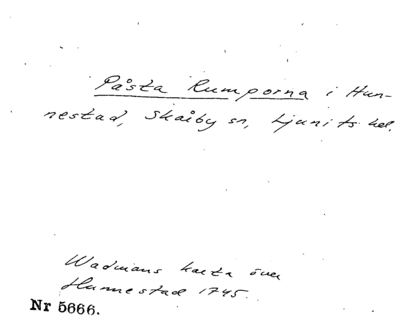 Påsta Rumporna i Hun-
nestad, Skårby sn, Ljunits hd.
Wadmans karta över
Hunnestad 1745.
Nr 5666.